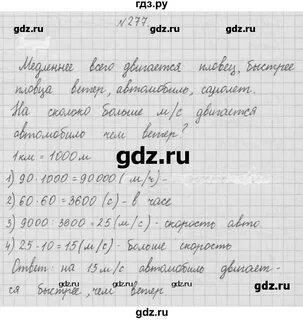 гдз.ру
№277.
gdz.ru gdz.ru
Медленнее всего двигается пловец, быстрее
пловца ветер, автомобиль, самолет.
На сколько больше м/с двигается
автомобиль чем ветер?
1км = 1000м gdz.ru
1) 90·1000 = 90000 (м/ч) -
2) 60·60 = 3600 (с) - в часе
3) 9000:3600 = 25 (м/с) - скорость авто
4) 25-10 = 15 (м/с) - больше скорость
Ответ: на 15 м/с автомобиль двигает-
ся быстрее, чем ветер
gdz.ru gdz.ru